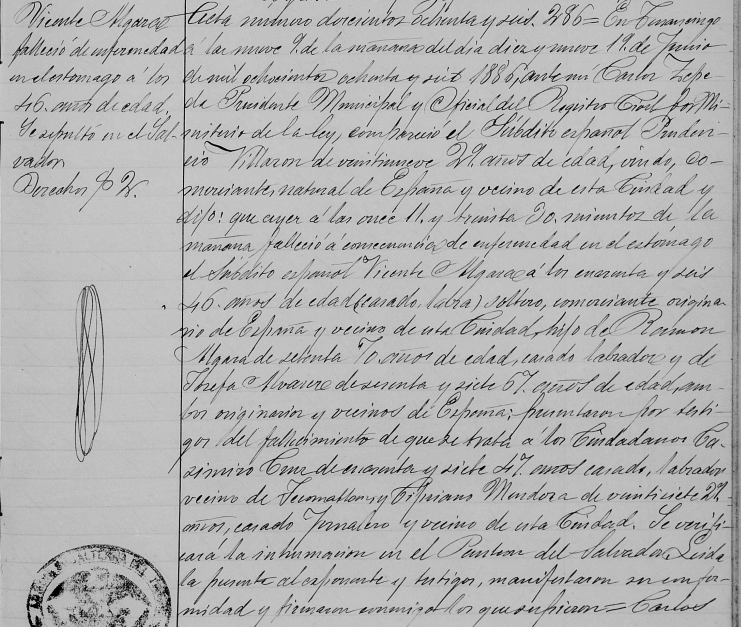 Vicente Algara
falleció de enfermedad
en el estomago á los
46. años de edad.
Se sepultó en el Sal-
vador
Derechos $ 2.
Acta numero doscientos ochenta y seis. 286= En Tenancingo
á las nueve 9. de la mañana del dia diez y nueve 19. de Junio
de mil ochocientos ochenta y seis 1886, ante mi Carlos Zepe-
da Presidente Municipal y Oficial del Registro Civil por Mi-
nisterio de la ley, compareció el Súbdito español Pruden-
cio Villazon de veintinueve 29. años de edad, viudo, co-
merciante, natural de España y vecino de esta Ciudad y
dijo: que ayer á las once 11. y treinta 30. minutos de la
mañana falleció á consecuencia de enfermedad en el estómago
el Súbdito español Vicente Algara á los cuarenta y seis
46. años de edad (casado, labra) soltero, comerciante origina-
rio de España y vecino de esta Ciudad, hijo de Ramon
Algara de setenta 70. años de edad, casado labrador y de
Josefa Alvarez de sesenta y siete 67. años de edad, am-
bos originarios y vecinos de España; presentaron por testi-
gos del fallecimiento de que se trata á los Ciudadanos Ca-
simiro Cruz de cuarenta y siete 47. años casado, labrador
vecino de y Cipriano Mendoza de veintisiete 27.
años, casado Jornalero y vecino de esta Ciudad. Se verifi-
cará la inhumacion en el Panteon del Salvador. Leida
la presente al exponente y testigos, manifestaron su confor-
midad y firmaron conmigo los que supieron= Carlos